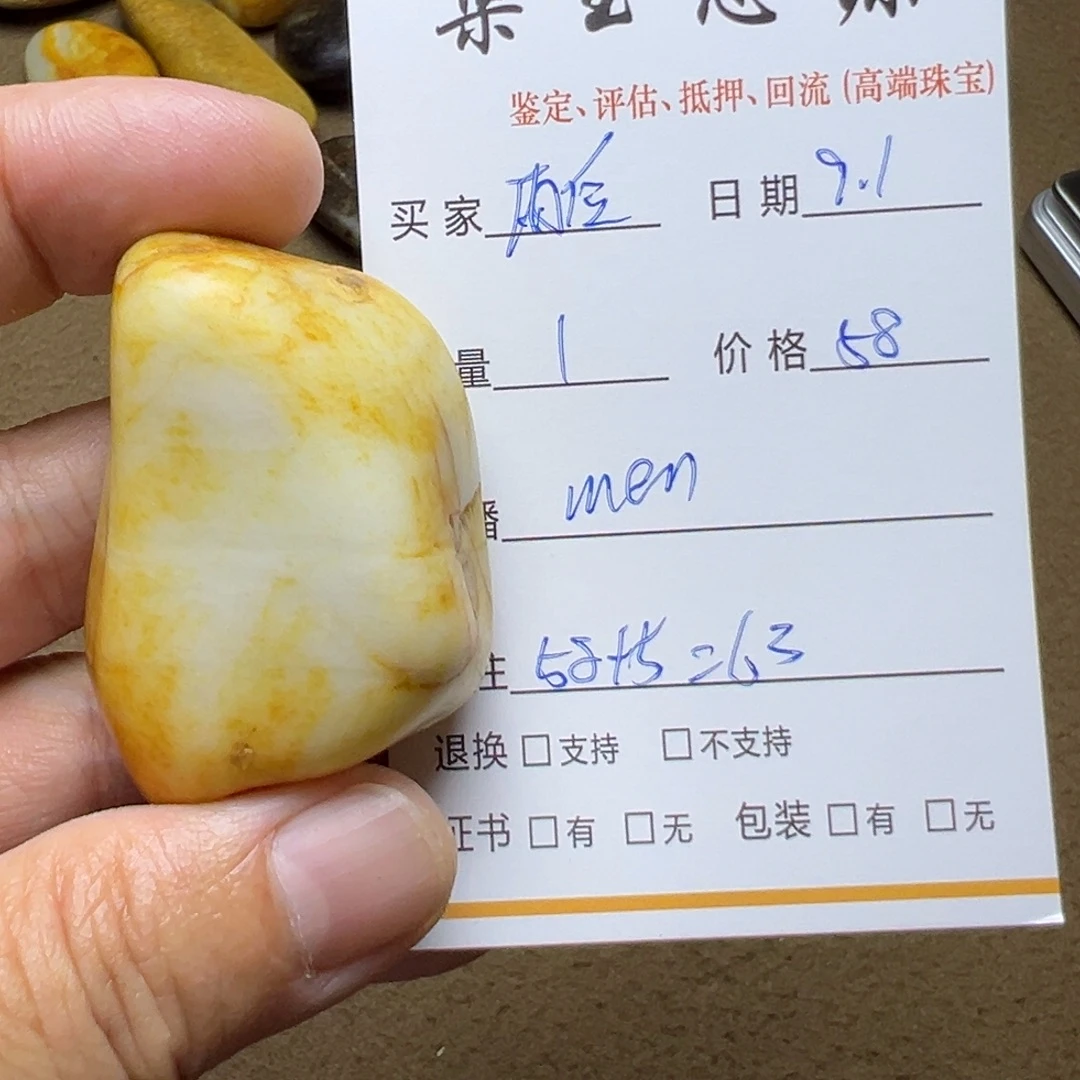 鉴定、评估、抵押、回流(高端珠宝)
买家 日期 9.1
量 1 价格 58
播 men
注 58+5=63
退换 □支持 □不支持
证书 □有 □无 包装 □有 □无